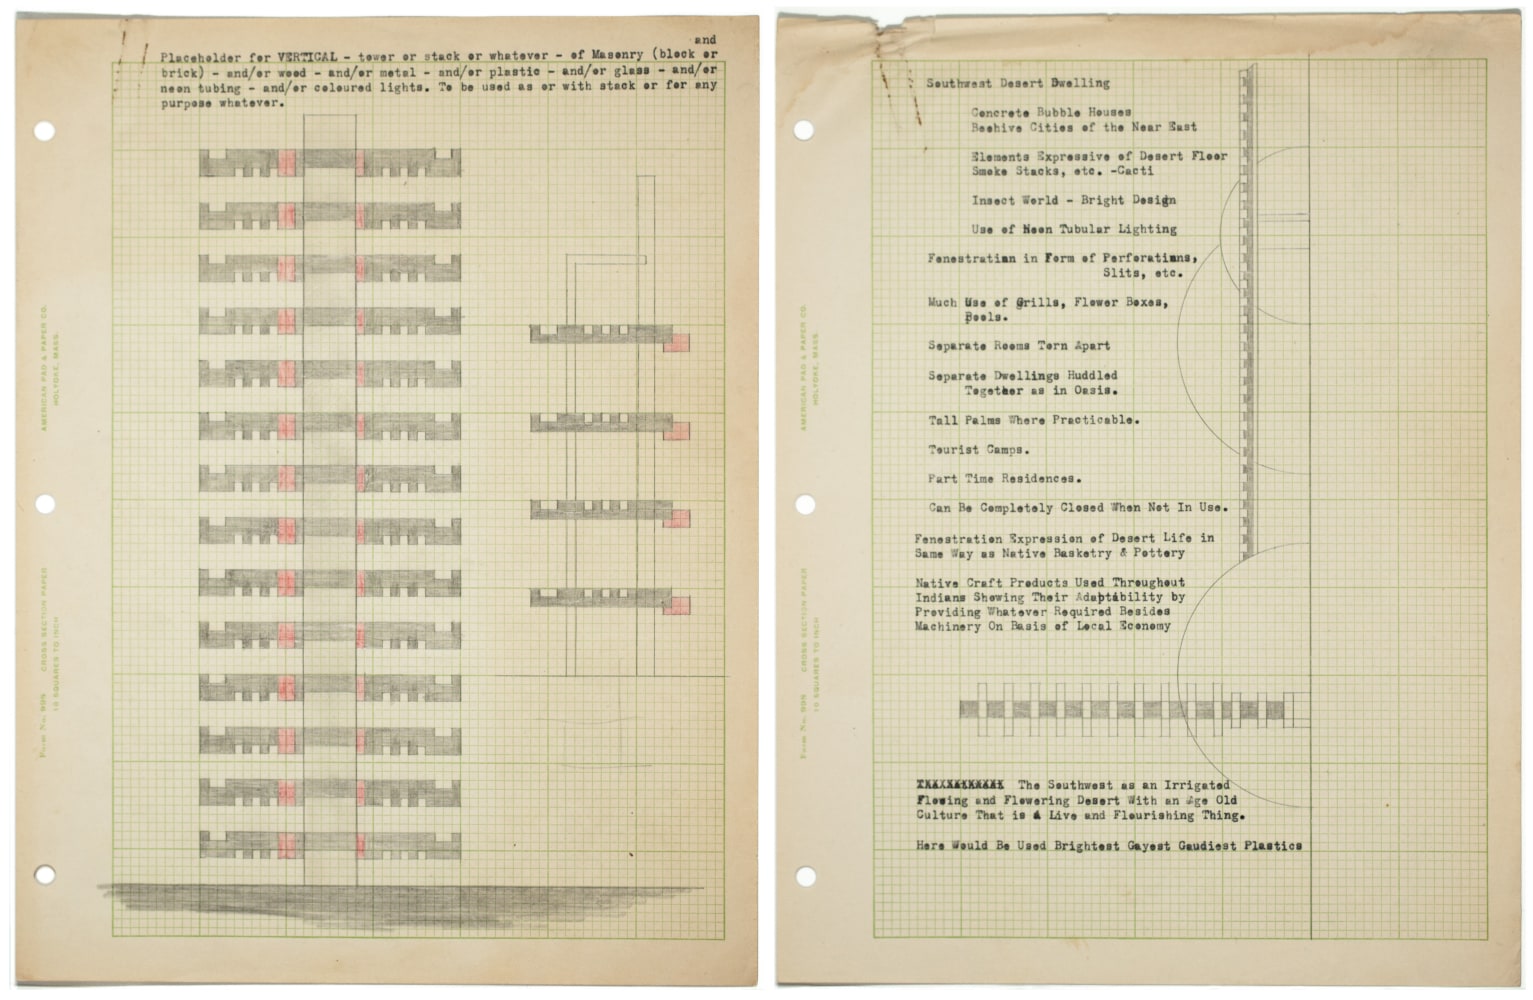 and
Placeholder for VERTICAL - tower or stack or whatever - of Masonry (block or
brick) - and/or wood - and/or metal - and/or plastic - and/or glass - and/or
neon tubing - and/or coloured lights. To be used as or with stack or for any
purpose whatever.
AMERICAN PAD & PAPER CO.
HOLYOKE, MASS.
CROSS SECTION PAPER
10 SQUARES TO INCH
Form No. 995
Southwest Desert Dwelling
Concrete Bubble Houses
Beehive Cities of the Near East
Elements Expressive of Desert Floor
Smoke Stacks, etc. -Cacti
Insect World - Bright Design
Use of Neon Tubular Lighting
Fenestration in Form of Perforations,
Slits, etc.
Much Use of Grills, Flower Boxes,
Pools.
Separate Rooms Torn Apart
Separate Dwellings Huddled
Together as in Oasis.
Tall Palms Where Practicable.
Tourist Camps.
Part Time Residences.
Can Be Completely Closed When Not In Use.
Fenestration Expression of Desert Life in
Same Way as Native Basketry & Pottery
Native Craft Products Used Throughout
Indians Showing Their Adaptability by
Providing Whatever Required Besides
Machinery On Basis of Local Economy
The Southwest as an Irrigated
Flowing and Flowering Desert With an Age Old
Culture That is A Live and Flourishing Thing.
Here Would Be Used Brightest Gayest Gaudiest Plastics
AMERICAN PAD & PAPER CO.
HOLYOKE, MASS
CROSS SECTION PAPER
10 SQUARES TO INCH
Form No. 995